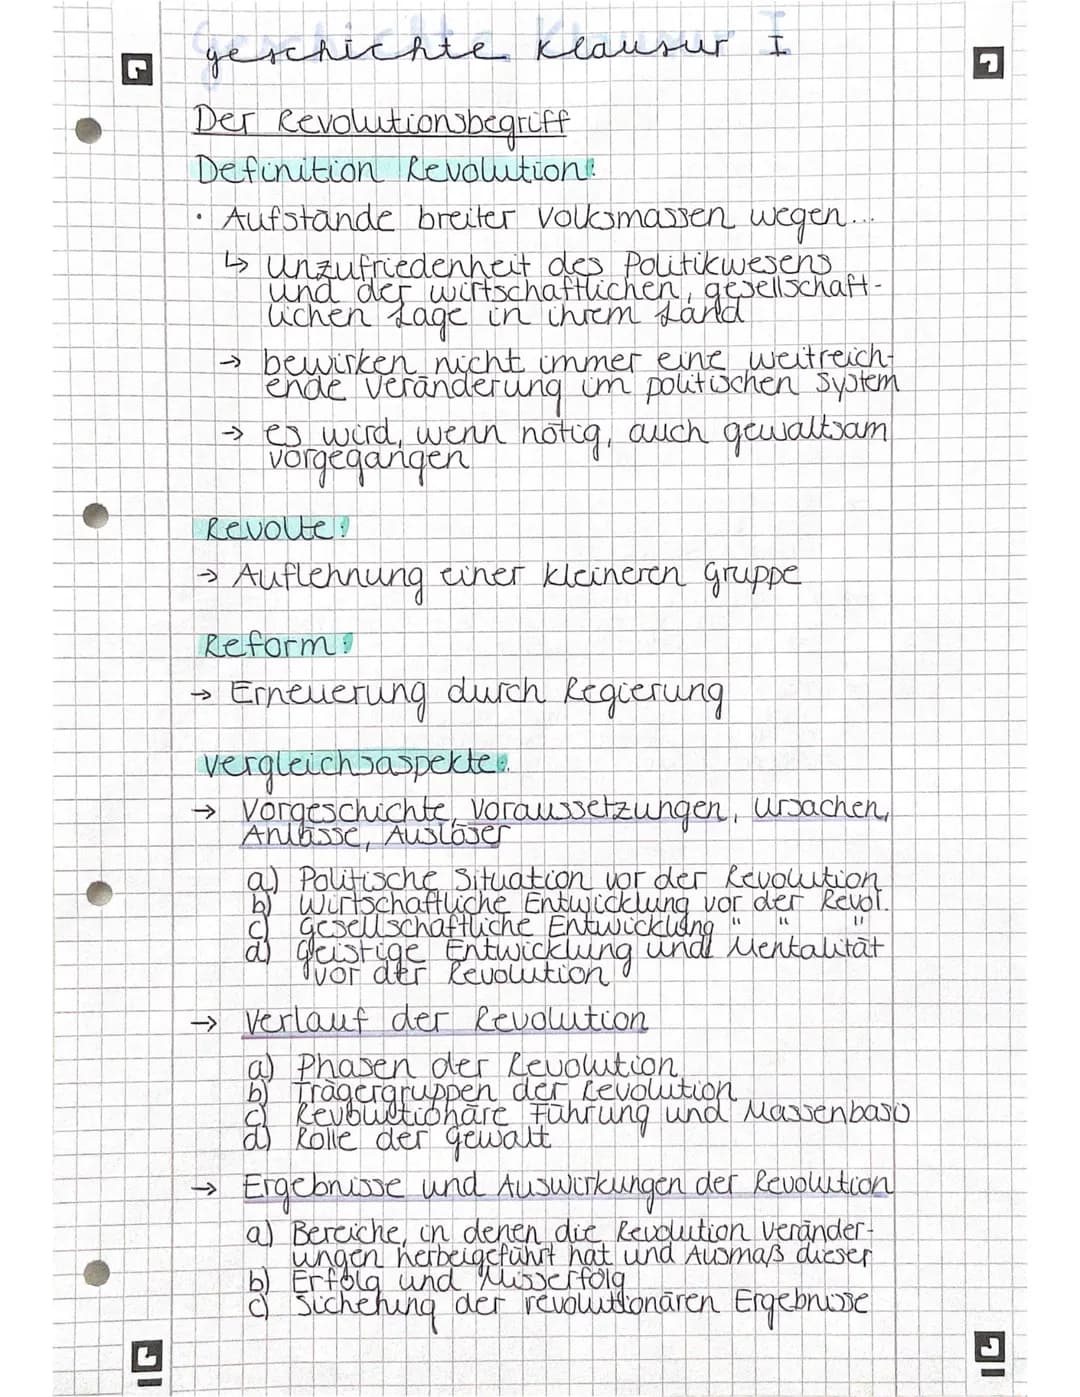 geschichte Klausur I
Der Revolutionsbegriff
Definition Revolution:
· Aufstände breiter Volksmassen wegen...
↳ Unzufriedenheit des Politikwesens
und der wirtschaftlichen, gesellschaft-
lichen Lage in ihrem Land
→ bewirken nicht immer eine weitreich-
ende Veränderung im politischen System
→ es wird, wenn nötig, auch gewaltsam
vorgegangen
Revolte:
→ Auflehnung einer kleineren Gruppe
Reform:
→ Erneuerung durch Regierung
Vergleichsaspekte:
→ Vorgeschichte, Voraussetzungen, Ursachen,
Anlässe, Auslöser
a) Politische Situation vor der Revolution
b) Wirtschaftliche Entwicklung vor der Revol.
c) gesellschaftliche Entwicklung " " "
d) geistige Entwicklung und Mentalität
vor der Revolution
→ Verlauf der Revolution
a) Phasen der Revolution
b) Trägergruppen der Revolution
c) Revolutionäre Führung und Massenbasis
d) Rolle der Gewalt
→ Ergebnisse und Auswirkungen der Revolution
a) Bereiche, in denen die Revolution Veränder-
ungen herbeigeführt hat und Ausmaß dieser
b) Erfolg und Misserfolg
c) Sicherung der revolutionären Ergebnisse